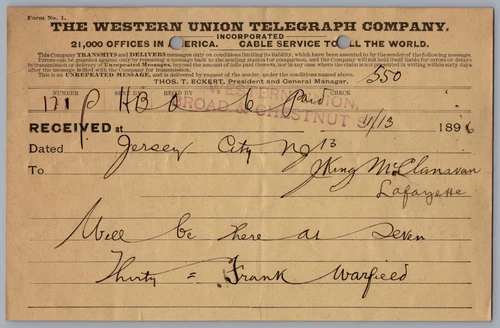 Form No. 1.
THE WESTERN UNION TELEGRAPH COMPANY.
INCORPORATED
21,000 OFFICES IN AMERICA. CABLE SERVICE TO ALL THE WORLD.
This Company TRANSMITS and DELIVERS messages only on conditions limiting its liability, which have been assented to by the sender of the following message.
Errors can be guarded against only by repeating a message back to the sending station for comparison, and the Company will not hold itself liable for errors or delays
in transmission or delivery of Unrepeated Messages, beyond the amount of tolls paid thereon, nor in any case where the claim is not presented in writing within sixty days
after the message is filed with the Company for transmission.
This is an UNREPEATED MESSAGE, and is delivered by request of the sender, under the conditions named above.
THOS. T. ECKERT, President and General Manager.
550
NUMBER SENT BY REC'D BY CHECK
171 P HB 6 Paid
WESTERN UNION,
BROAD & CHESTNUT
RECEIVED at 11/13 1896
Dated Jersey City NJ 13
To J King McClanavan
Lafayette
Will be there at seven
Thirty = Frank Warfield